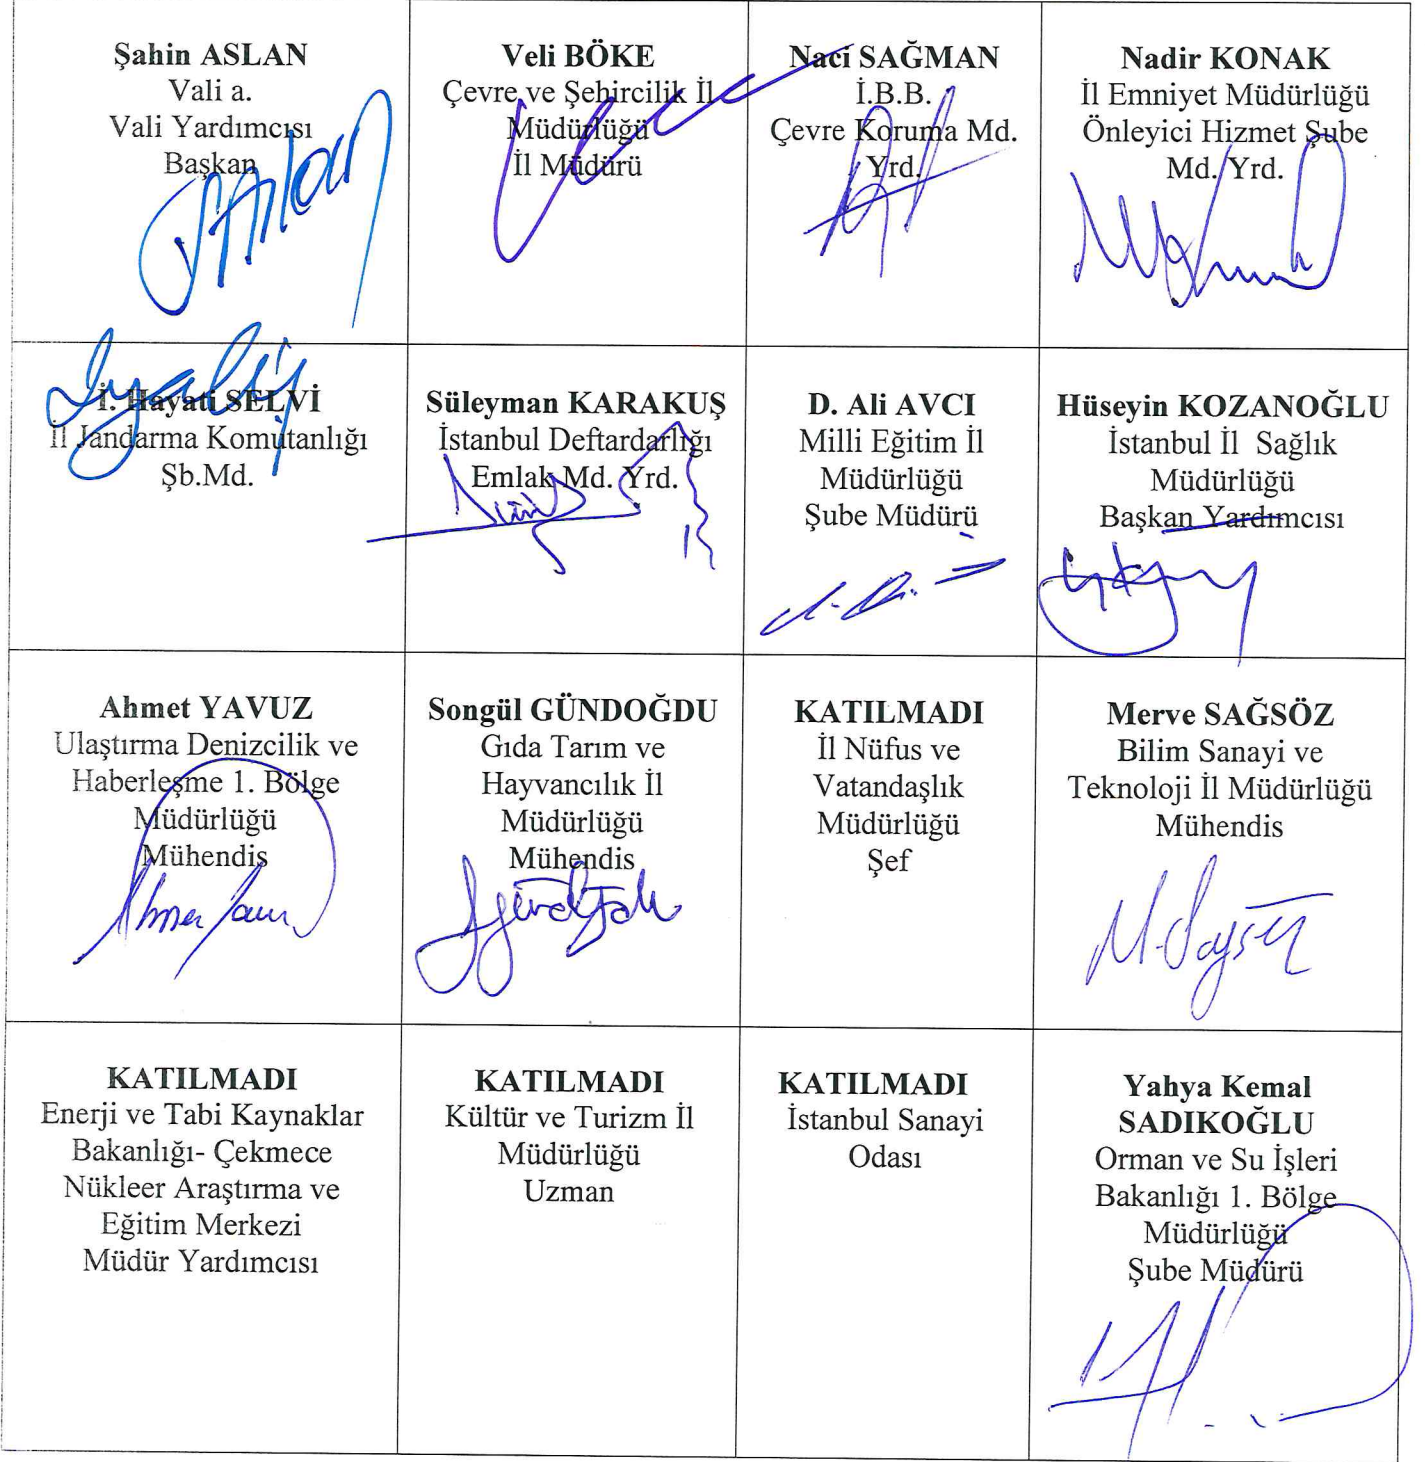 Şahin ASLAN
Vali a.
Vali Yardımcısı
Başkan
Veli BÖKE
Çevre ve Şehircilik İl
Müdürlüğü
İl Müdürü
Naci SAĞMAN
İ.B.B.
Çevre Koruma Md.
Yrd.
Nadir KONAK
İl Emniyet Müdürlüğü
Önleyici Hizmet Şube
Md. Yrd.
İ. Hayati SELVİ
İl Jandarma Komutanlığı
Şb.Md.
Süleyman KARAKUŞ
İstanbul Deftardarlığı
Emlak Md. Yrd.
D. Ali AVCI
Milli Eğitim İl
Müdürlüğü
Şube Müdürü
Hüseyin KOZANOĞLU
İstanbul İl Sağlık
Müdürlüğü
Başkan Yardımcısı
Ahmet YAVUZ
Ulaştırma Denizcilik ve
Haberleşme 1. Bölge
Müdürlüğü
Mühendis
Songül GÜNDOĞDU
Gıda Tarım ve
Hayvancılık İl
Müdürlüğü
Mühendis
KATILMADI
İl Nüfus ve
Vatandaşlık
Müdürlüğü
Şef
Merve SAĞSÖZ
Bilim Sanayi ve
Teknoloji İl Müdürlüğü
Mühendis
KATILMADI
Enerji ve Tabi Kaynaklar
Bakanlığı- Çekmece
Nükleer Araştırma ve
Eğitim Merkezi
Müdür Yardımcısı
KATILMADI
Kültür ve Turizm İl
Müdürlüğü
Uzman
KATILMADI
İstanbul Sanayi
Odası
Yahya Kemal
SADIKOĞLU
Orman ve Su İşleri
Bakanlığı 1. Bölge
Müdürlüğü
Şube Müdürü